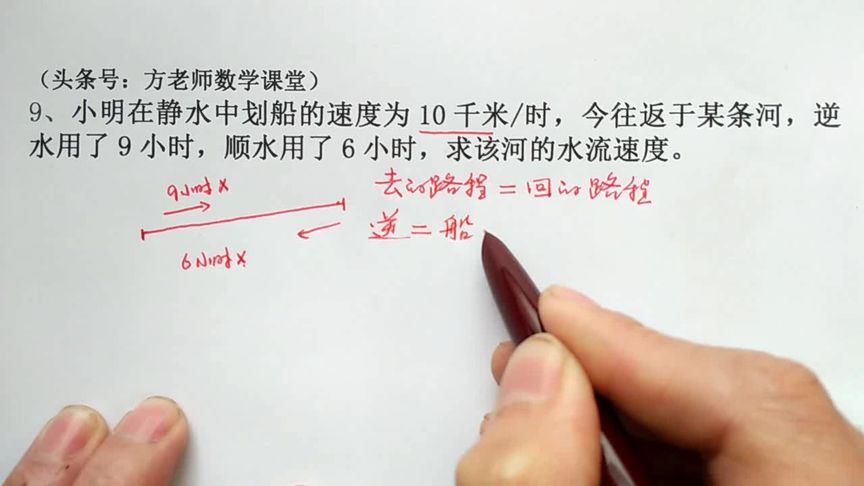 （头条号：方老师数学课堂）
9、小明在静水中划船的速度为 10 千米/时，今往返于某条河，逆
水用了 9 小时，顺水用了 6 小时，求该河的水流速度。
9小时 ×
去的路程 = 回的路程
逆 = 船
6小时 ×